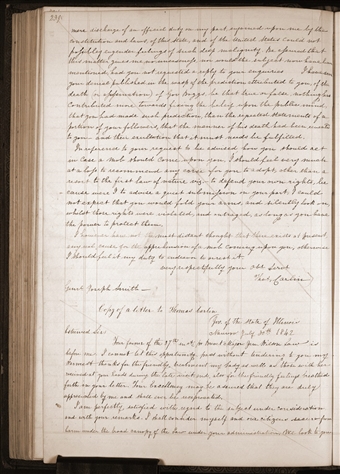 more discharge of an official duty on my part, enjoined upon me by the
constitution and laws of this State, and of the United States could not
possibly engender feelings of such deep malignity. Be assured that
this matter gives me no uneasiness nor would the subject now have been
mentioned, had you not requested a reply to your enquiries. I have seen
your denial published in the Wasp of the prediction attributed to you, of the
death (or assassination) of Gov. Boggs, be that true or false, nothing has
contributed more towards fixing the belief upon the public mind
that you had made such prediction, than the repeated statements of a
portion of your followers, that the manner of his death had been
to you and their exultation that it must needs be fulfilled.
In reference to your request to be advised how you should act
in case a mob should come upon you, I should feel very much
at a loss to recommend any course for you to adopt, other than a
resort to the first Law of nature, viz. to defend your own rights, be
cause were I to advise a quiet submission, on your part, I could
not expect that you would fold your arms, and silently look on,
whilst those rights were violated, and outraged, as long as you have
the power to protect them.
I however have not the most distant thought that there exists at present,
any real cause for the apprehension of a mob coming upon you, otherwise
I should feel it my duty to endeavor to arrest it.
very respectfully your Obt Servt
Tho. Carlin
Genl. Joseph Smith—
Copy of a letter to Thomas Carlin
Gov of the State of Illinois
Nauvoo July 30th 1842
Esteemed Sir
Your favour of the 27th
before me. I cannot let this opportunity pass without tendering to you my
warmest thanks for the friendly treatment my lady as well as those with her
received at your hands during the late visit, and also for the friendly feelings breathed
forth in your letter. Your Excellency may be assured that they are duly
appreciated by me and shall ever be reciprocated.
I am perfectly satisfied with regard to the subject under consideration
and with your remarks. I shall consider myself and our citizens secure from
harm under the broad canopy of the law under your administration. We look to you